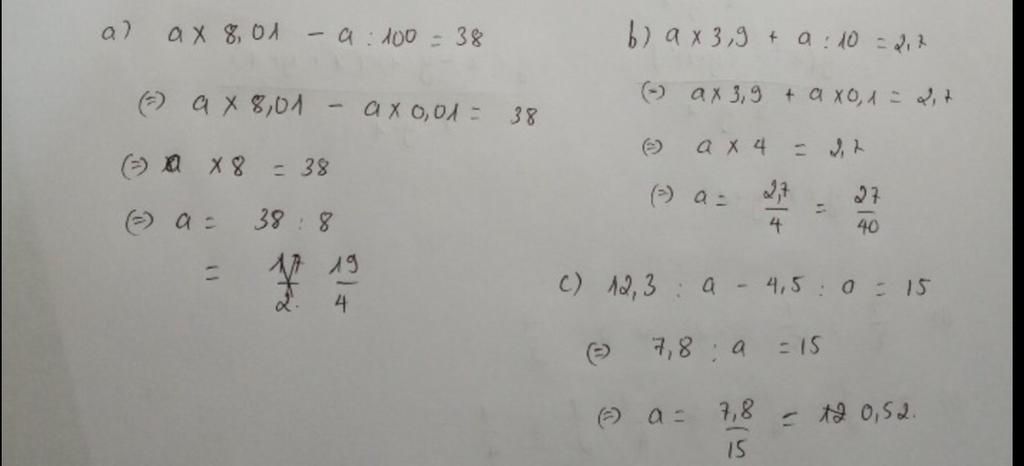 a) a x 8,01 - a : 100 = 38
(=) a x 8,01 - a x 0,01 = 38
(=) a x 8 = 38
(=) a = 38 : 8
= 19/4
b) a x 3,9 + a : 10 = 2,7
(=) a x 3,9 + a x 0,1 = 2,7
(=) a x 4 = 2,7
(=) a = 2,7/4 = 27/40
c) 12,3 : a - 4,5 : a = 15
(=) 7,8 : a = 15
(=) a = 7,8/15 = 0,52.